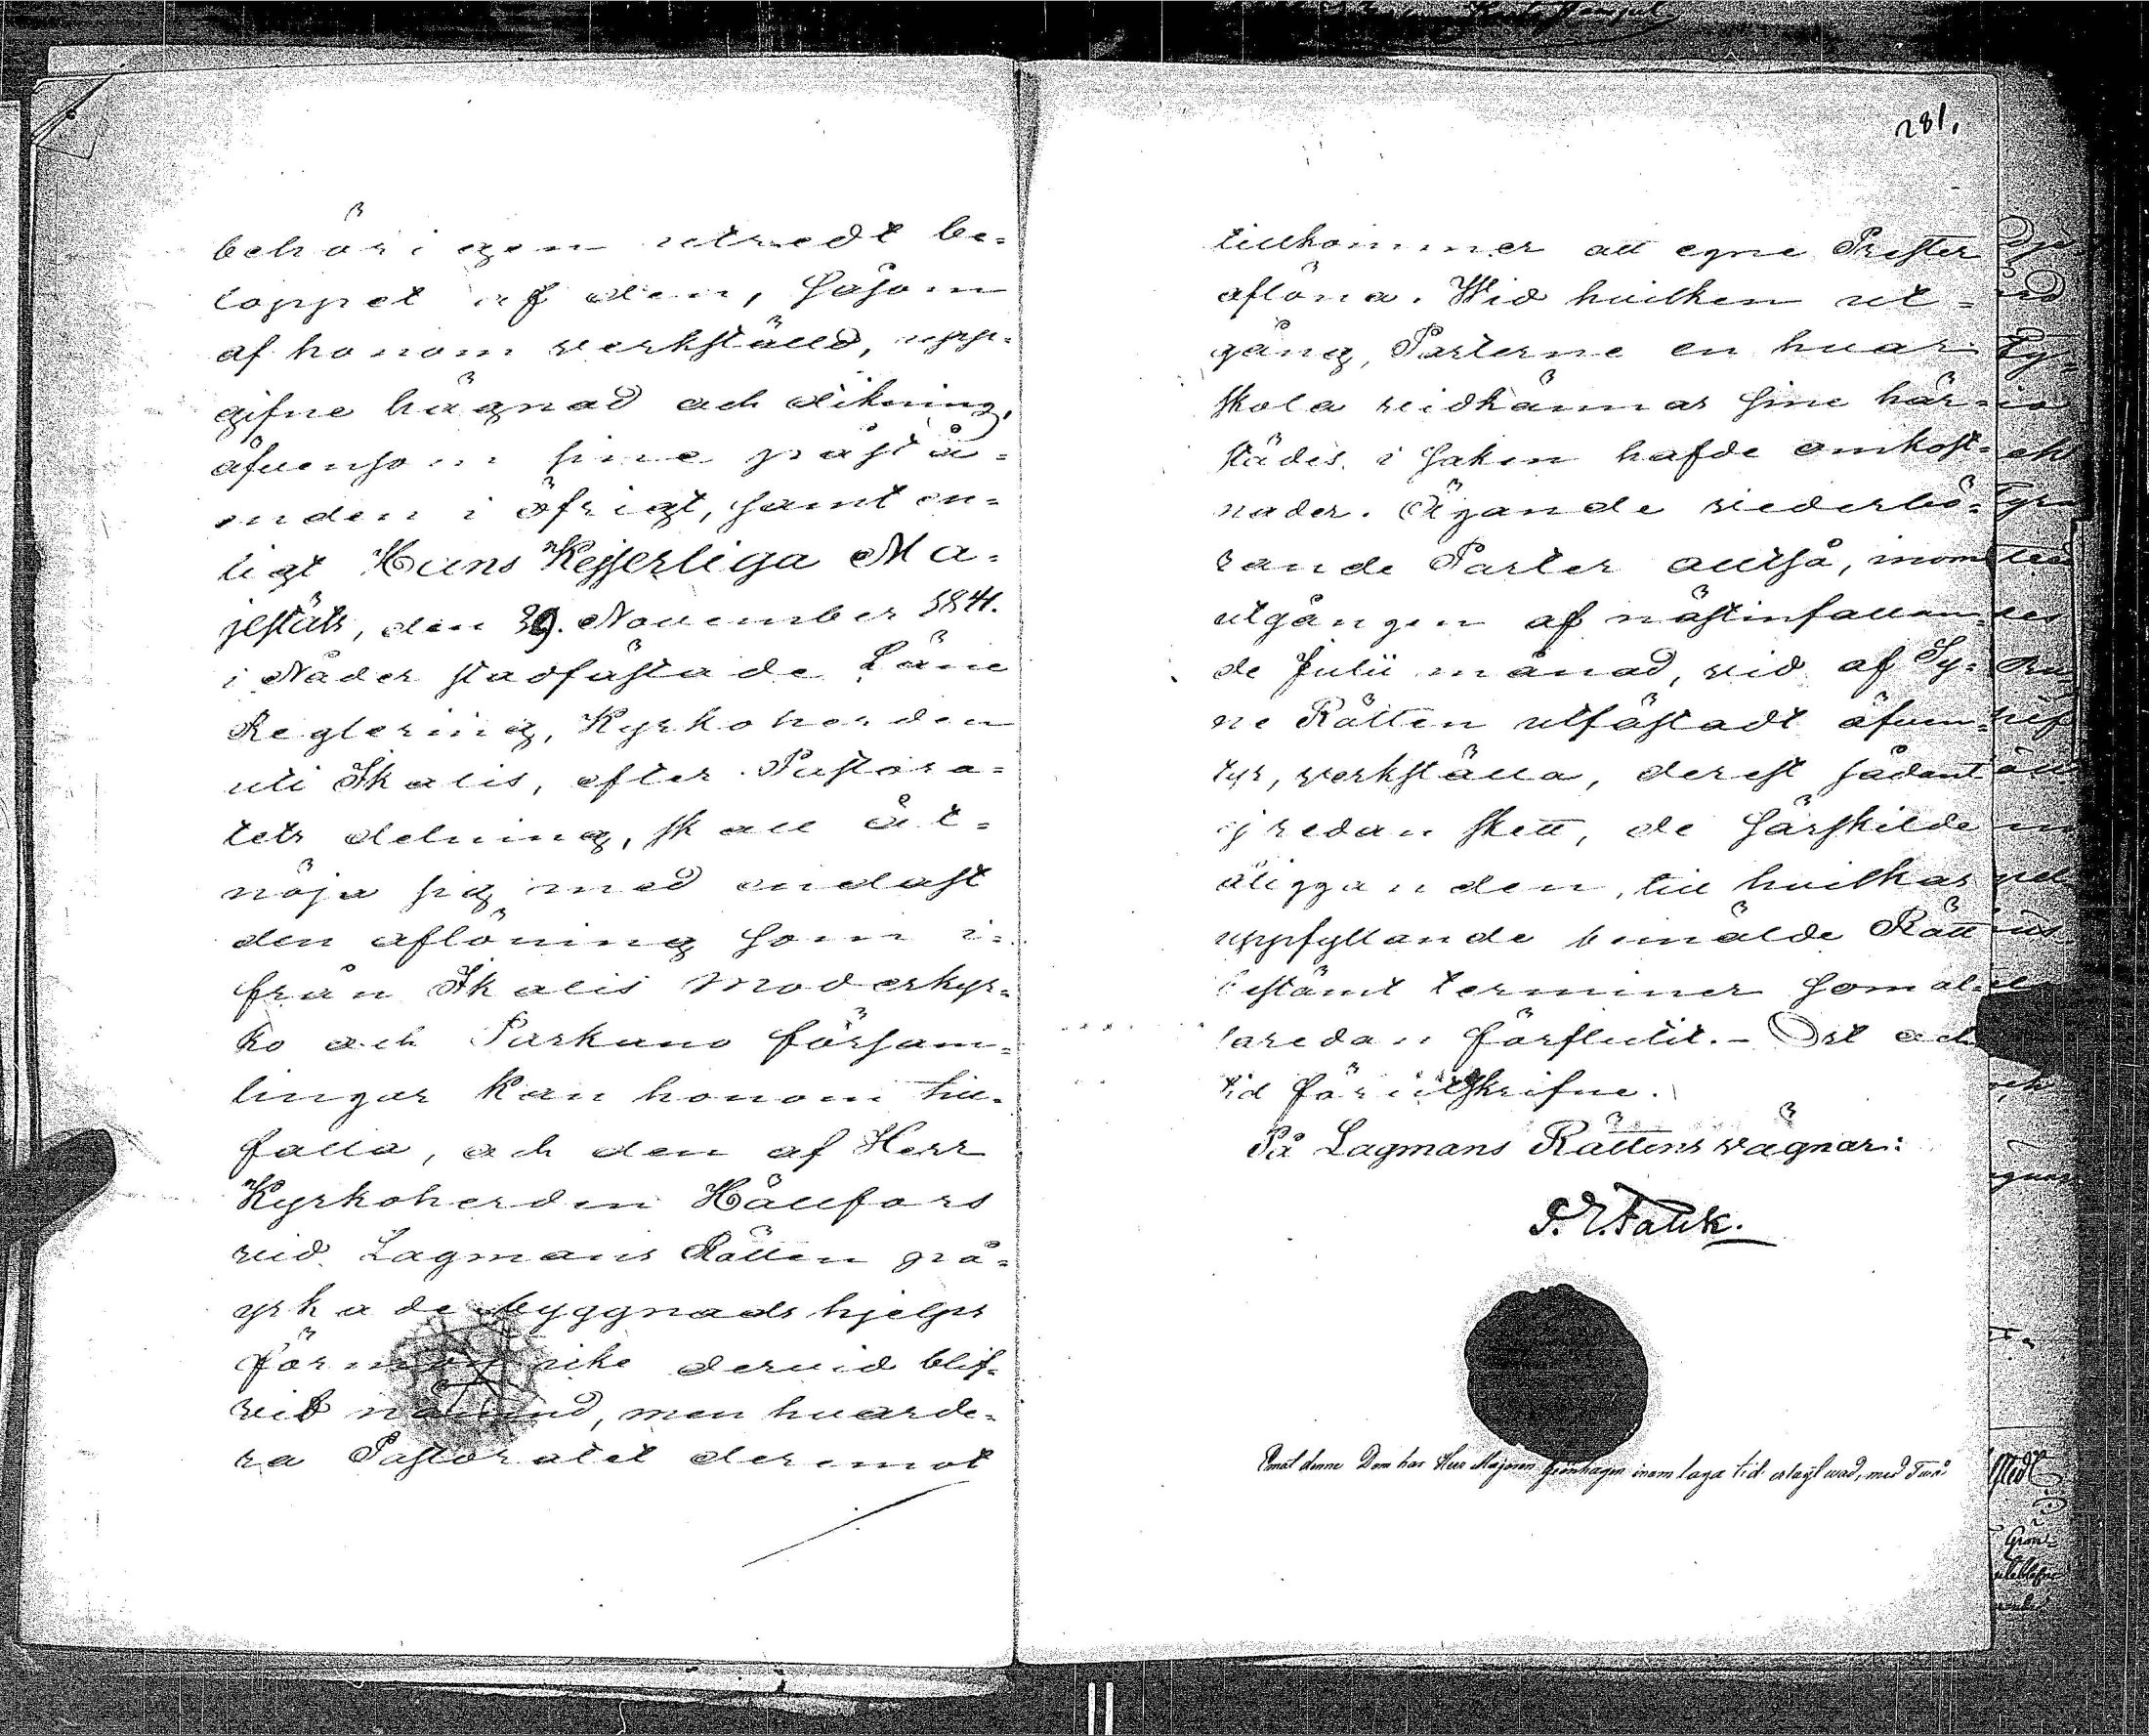 behörigen utredt be=
loppet af den, såsom
af honom verkställd, upp=
gifne hägnad och dikning,
äfvensom sine påstå=
enden i öfrigt, samt en=
ligt Hans Kejserliga Ma=
jestäts, den 29. November 1841.
i Nåder stadfästade Löne
Reglering, Kyrkoherden
uti Ikalis, efter Pastora=
tets delning, skall åt=
nöja sig med endast
den aflöning som i=
från Ikalis Moderkyr=
ko och Parkano försam=
lingar kan honom till=
falla, och den af Herr
Kyrkoherden Hällfors
vid Lagmans Rätten på=
yrkade byggnads hjelps
förmon icke dervid blif=
vit nämnd, men hvarde=
ra Pastoratet deremot
281.
tillkommer att egne Prester
aflöna. Wid hvilken ut=
gång, Parterne en hvar
skola vidkännas sine här=
städes i saken hafde omkost=
nader. Ägande vederbö=
rande Parter alltså, inom
utgången af nästinfallan=
de Julii månad, vid af Sy=
ne Rätten utfästadt äfven=
tyr, verkställa, derest sådant
ej redan skett, de särskilde
åligganden, till hvilkas
uppfyllande bemälde Rätt
bestämt terminer som al=
laredan förflutit. - Ort och
tid förutskrifne.
På Lagmans Rättens vägnar:
Falck.
Emot denne Dom har Herr Majoren Grönhagen inom laga tid erlagt wad, med Två